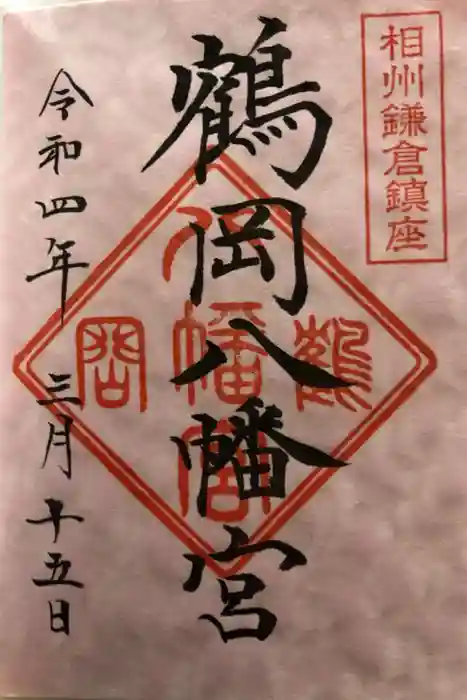 相州鎌倉鎮座
鶴岡八幡宮
鶴
八幡宮
岡
令和四年 三月十五日